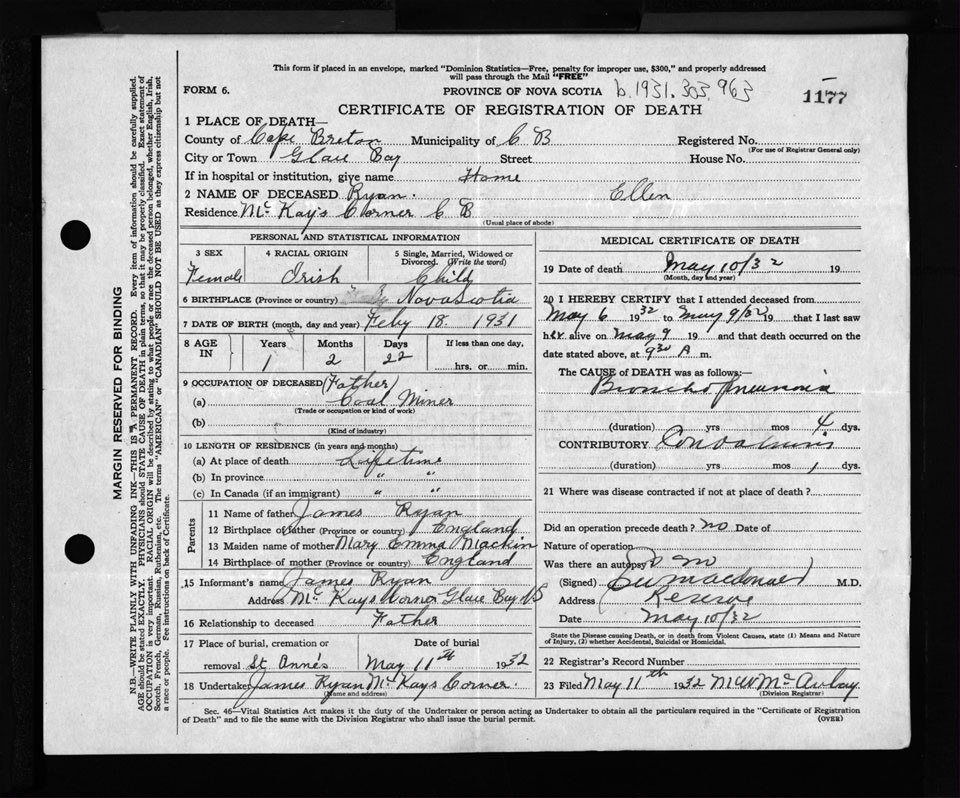 This form if placed in an envelope, marked "Dominion Statistics—Free, penalty for improper use, $300," and properly addressed
will pass through the Mail "FREE"
FORM 6.
PROVINCE OF NOVA SCOTIA b.1931.303.963
1177
CERTIFICATE OF REGISTRATION OF DEATH
1 PLACE OF DEATH—
County of Cape Breton Municipality of C B Registered No.
(For use of Registrar General only)
City or Town Glace Bay Street House No.
If in hospital or institution, give name Home
2 NAME OF DECEASED Ryan. Ellen
Residence Mc Kay's Corner C B
(Usual place of abode)
PERSONAL AND STATISTICAL INFORMATION
3 SEX 4 RACIAL ORIGIN 5 Single, Married, Widowed or
Divorced. (Write the word)
Female Irish Child
6 BIRTHPLACE (Province or country) Nova Scotia
7 DATE OF BIRTH (month, day and year) Feby 18 1931
8 AGE IN Years Months Days If less than one day,
1 2 22 hrs. or min.
9 OCCUPATION OF DECEASED (Father)
(a) Coal Miner
(Trade or occupation or kind of work)
(b)
(Kind of industry)
10 LENGTH OF RESIDENCE (in years and months)
(a) At place of death Lifetime
(b) In province " "
(c) In Canada (if an immigrant) " "
Parents
11 Name of father James Ryan
12 Birthplace of father (Province or country) England
13 Maiden name of mother Mary Emma Mackin
14 Birthplace of mother (Province or country) England
15 Informant's name James Ryan
Address Mc Kays Corner Glace Bay NS
16 Relationship to deceased Father
17 Place of burial, cremation or Date of burial
removal St Anne's May 11th 1932
18 Undertaker James Ryan Mc Kays Corner.
(Name and address)
MEDICAL CERTIFICATE OF DEATH
19 Date of death May 10/32 19
(Month, day and year)
20 I HEREBY CERTIFY that I attended deceased from
May 6 1932 to May 9/32 19 that I last saw
her alive on May 9 19 and that death occurred on the
date stated above, at 9 30 A m.
The CAUSE OF DEATH was as follows:—
Broncho pneumonia
(duration) yrs mos 4 dys.
CONTRIBUTORY Convulsions
(duration) yrs mos 1 dys.
21 Where was disease contracted if not at place of death?
Did an operation precede death? no Date of
Nature of operation
Was there an autopsy?
(Signed) Macdonald M.D.
Address Reserve
Date May 10/32
State the Disease causing Death, or in death from Violent Causes, state (1) Means and Nature
of Injury, (2) whether Accidental, Suicidal or Homicidal.
22 Registrar's Record Number
23 Filed May 11th 1932 McAulay
(Division Registrar)
Sec. 46—Vital Statistics Act makes it the duty of the Undertaker or person acting as Undertaker to obtain all the particulars required in the "Certificate of Registration
of Death" and to file the same with the Division Registrar who shall issue the burial permit.
(OVER)
MARGIN RESERVED FOR BINDING
N.B.—WRITE PLAINLY WITH UNFADING INK—THIS IS A PERMANENT RECORD. Every item of information should be carefully supplied.
AGE should be stated EXACTLY. PHYSICIANS should STATE CAUSE OF DEATH in plain terms, so that it may be properly classified. Exact statement of
OCCUPATION is very important. RACIAL ORIGIN will be described by stating to what people or race the deceased person belonged, whether English, Irish,
Scotch, French, German, Russian, Ruthenian, etc. The terms "AMERICAN" or "CANADIAN" SHOULD NOT BE USED as they express citizenship but not
a race or people. See instructions on back of Certificate.